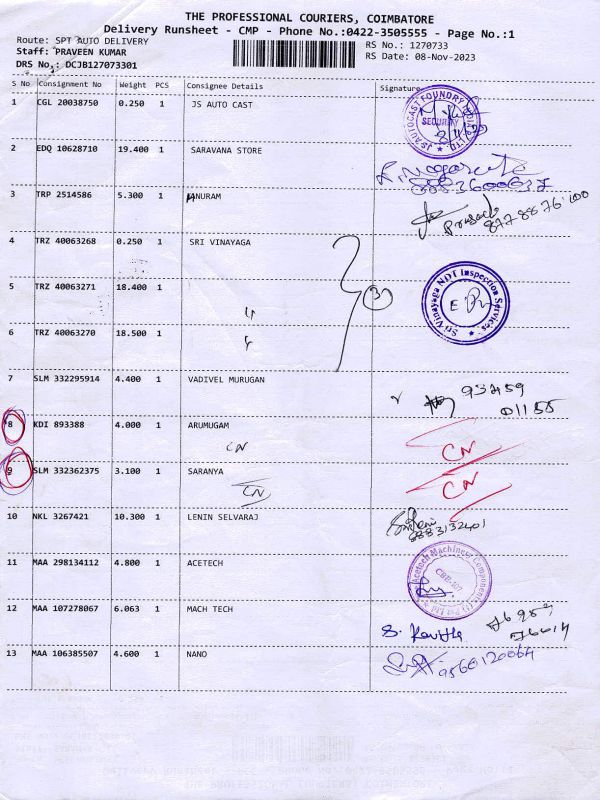 THE PROFESSIONAL COURIERS, COIMBATORE
Delivery Runsheet - CMP - Phone No.:0422-3505555 - Page No.:1
Route: SPT AUTO DELIVERY
RS No.: 1270733
Staff: PRAVEEN KUMAR
RS Date: 08-Nov-2023
DRS No.: DCJB127073301
S No Consignment No Weight PCS Consignee Details Signature
1 CGL 20038750 0.250 1 JS AUTO CAST
JS AUTOCAST FOUNDRY INDIA
SECURITY
2 EDQ 10628710 19.400 1 SARAVANA STORE
3 TRP 2514586 5.300 1 ANURAM
Prasad
4 TRZ 40063268 0.250 1 SRI VINAYAGA
5 TRZ 40063271 18.400 1
3
Sri Vinayaga NDT Inspection Services
6 TRZ 40063270 18.500 1
7 SLM 332295914 4.400 1 VADIVEL MURUGAN
93459
01155
8 KDI 893388 4.000 1 ARUMUGAM
CN CN
9 SLM 332362375 3.100 1 SARANYA
CN CN
10 NKL 3267421 10.300 1 LENIN SELVARAJ
8883132401
11 MAA 298134112 4.800 1 ACETECH
Acetech Machinery Components (I) Pvt Ltd
12 MAA 107278067 6.063 1 MACH TECH
13 MAA 106385507 4.600 1 NANO
9560120064